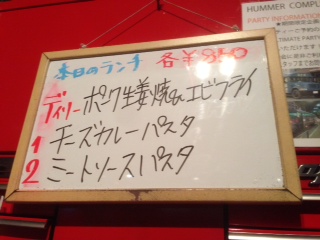 本日のランチ 各¥850
デイリー ポーク生姜焼&エビフライ
1 チーズカレーパスタ
2 ミートソースパスタ
HUMMER COMPU
PARTY INFORMATION